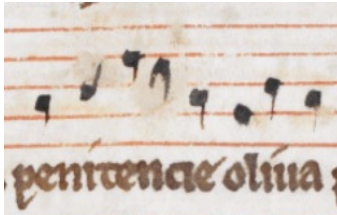 penitencie oliua